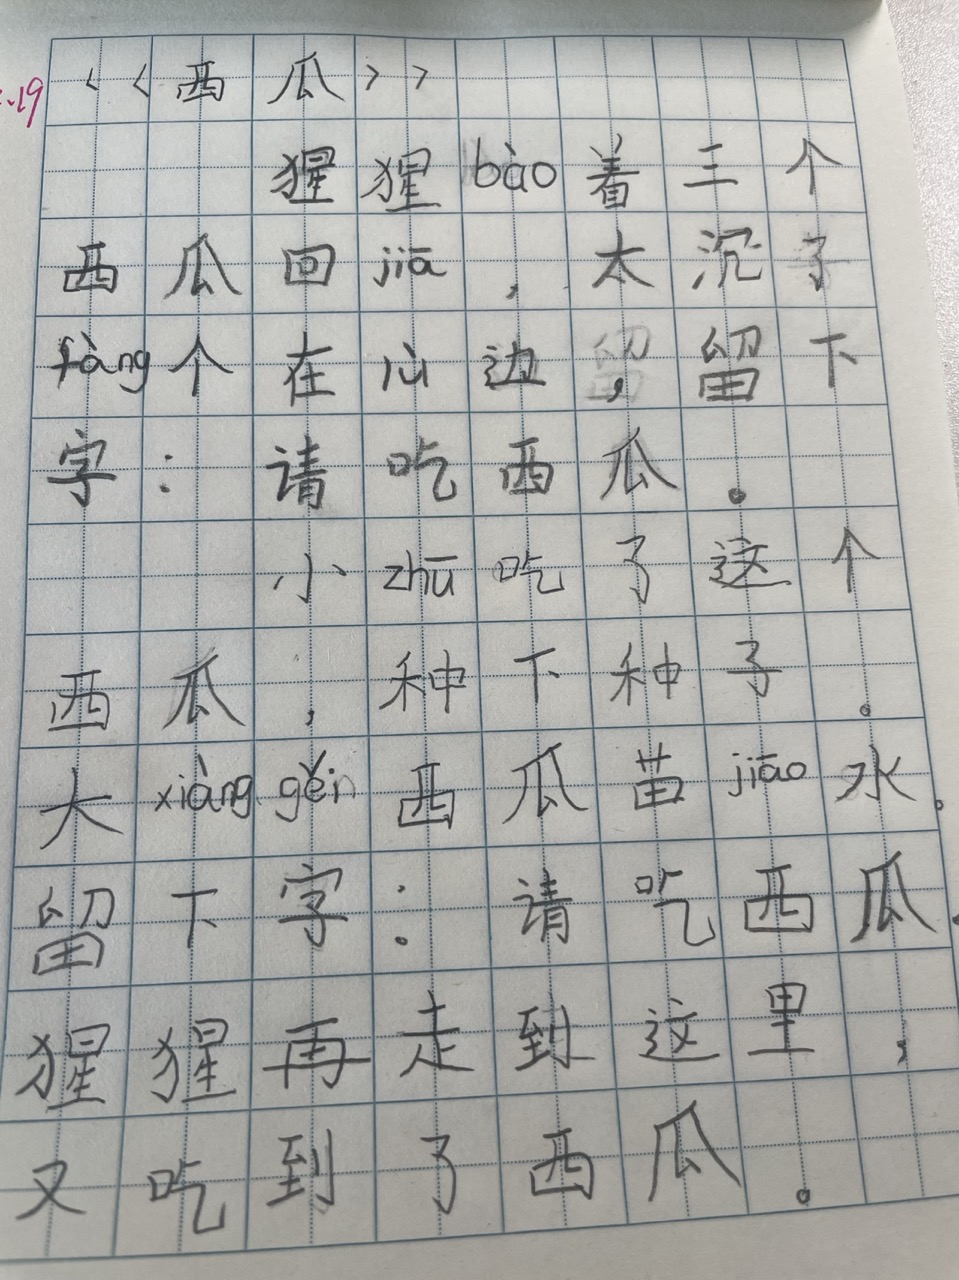 .19
《西瓜》
猩猩bào着三个
西瓜回jiā，太沉了
fàng个在lù边，留下
字：请吃西瓜。
小zhū吃了这个
西瓜，种下种子。
大xiàng gěi西瓜苗jiāo水。
留下字：请吃西瓜.
猩猩再走到这里，
又吃到了西瓜。